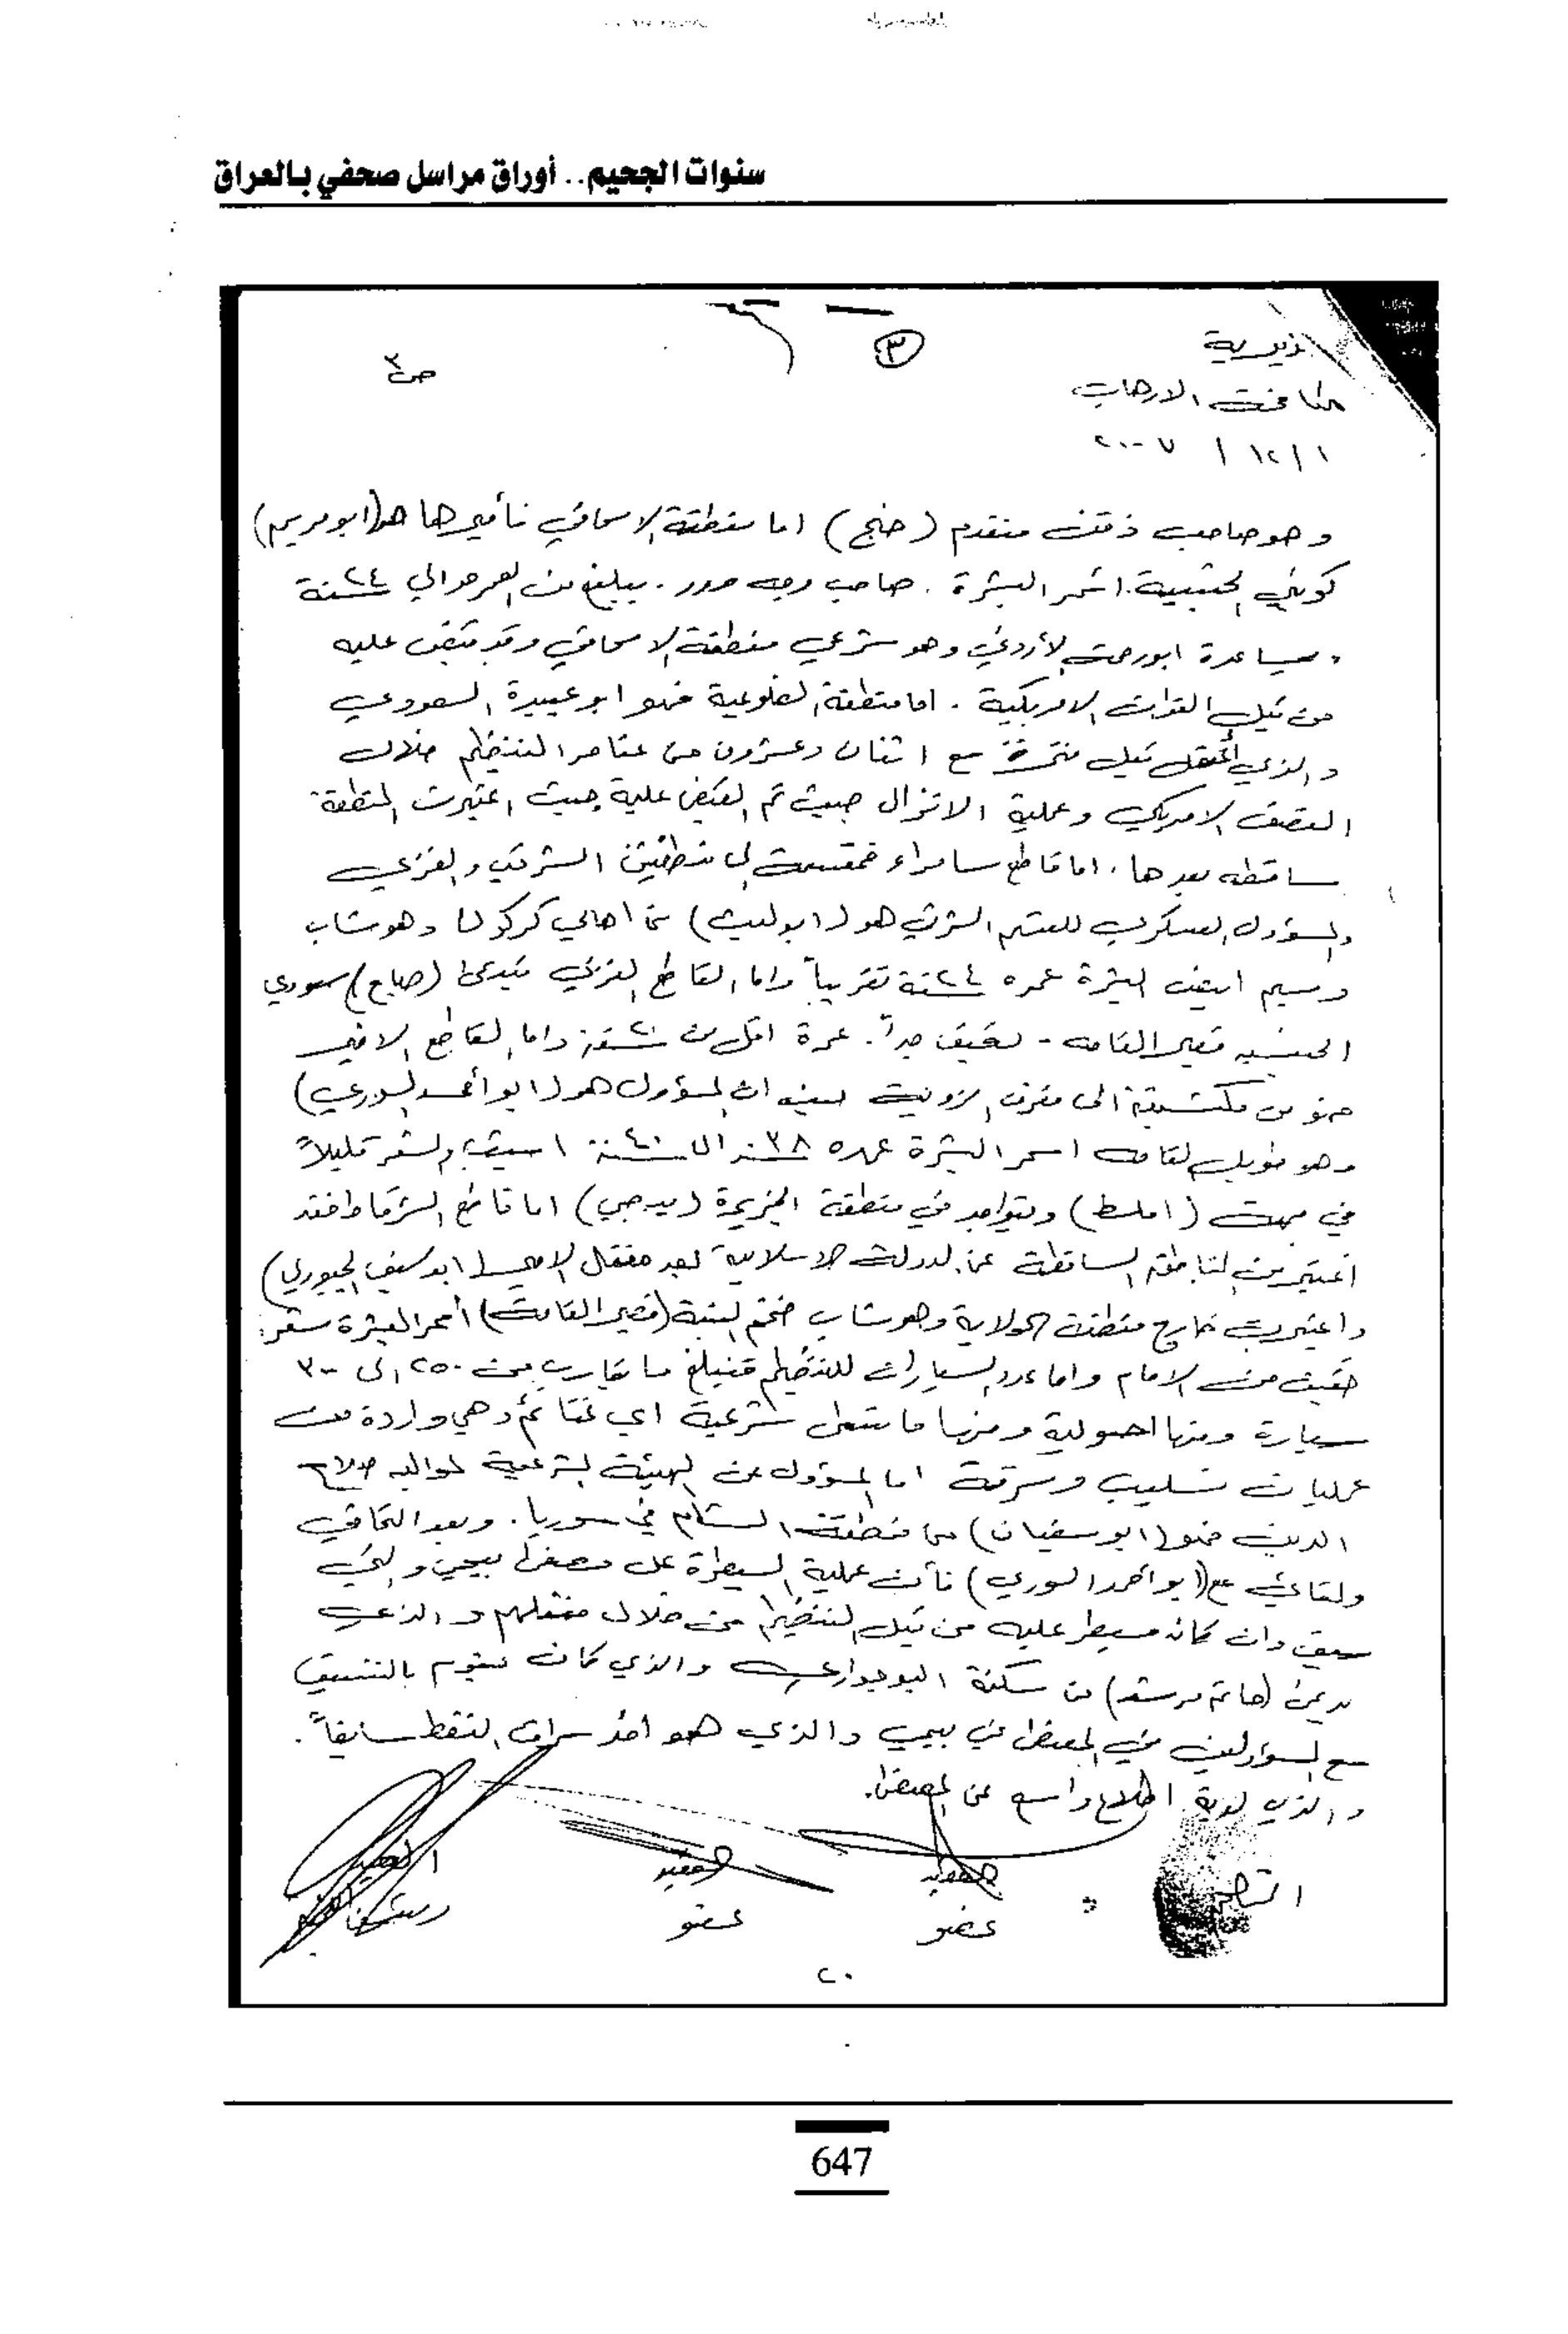 سنوات الجحيم.. أوراق مراسل صحفي بالعراق
٣
ص٣
مديرية
مكافحة الارهاب
١ / ١٢ / ٢٠٠٧
وهو صاحب ذقن متقدم (خنج) اما منطقة الاسحاقي فأميرها هو (ابو مريم)
كويتي الجنسية. اسمر البشرة. صاحب وجه مدور. يبلغ من العمر حوالي ٢٤ سنة
وبمساعدة ابو رحمة الأردني وهو شرعي منطقة الاسحاقي وقد قبض عليه
من قبل القوات الامريكية. اما منطقة الضلوعية فهو ابو عبيدة السعودي
والذي أعتقل قبل فترة مع اثنان وعشرون من عناصر التنظيم خلال
القصف الامريكي وعملية الانزال حيث تم القبض عليه حيث اعتبرت المنطقة
ساقطه بعدها. اما قاطع سامراء فمقسمة الى منطقتين الشرقي والغربي
والمسؤول العسكري للقسم الشرقي هو (ابو ليث) من اهالي كركوك وهو شاب
وسيم ابيض البشرة عمره ٢٤ سنة تقريباً واما القاطع الغربي فيدعى (صباح) سعودي
الجنسيه قصير القامه - نحيف جداً. عمرة اقل من ٢٠ سنة واما القاطع الاخير
فهو من مكيشيفة الى مفرق الزوية حيث ان المسؤول هو (ابو أحمد السوري)
وهو طويل القامه اسمر البشرة عمره ٣٨ سنة الى ٤٠ سنة اشيب الشعر قليلاً
في جهة (املط) ويتواجد في منطقة الجزيرة (بيجي) اما قاطع الشرقاط فقد
اعتبر من المناطق الساقطة عن الدولة الاسلامية بعد مقتل الامير (ابو سيف الجبوري)
واعتبرت خارج منطقة الولاية وهو شاب ضخم البنية (قصير القامة) أسمر البشرة شعر
خفيف من الامام واما عدد السيارات للتنظيم فتبلغ ما يقارب من ٢٥٠ الى ٣٠٠
سيارة ومنها اصولية ومنها ما تسمى شرعية اي غنائم وهي واردة من
عمليات تسليب وسرقة اما المسؤول عن الهيئة الشرعية لولاية صلاح
الدين فهو (ابو سفيان) من منطقة الشام في سوريا. وبعد التحاقي
ولقائي مع (ابو أحمد السوري) فأن عملية السيطرة على مصفى بيجي والتي
سبق وان كان مسيطر عليه من قبل التنظيم من خلال مقتلهم والذي
يدعى (حاتم مرشد) من سكنة البوجواري والذي كان يقوم بالتنسيق
مع المسؤولين في المصفى في بيجي والذي هو احد سراق النفط سابقاً.
والذي لدية اطلاع واسع عن المصفى.
المتهم
العقيد
العقيد
العميد
عضو
عضو
رئيس اللجنة
٢٠
647